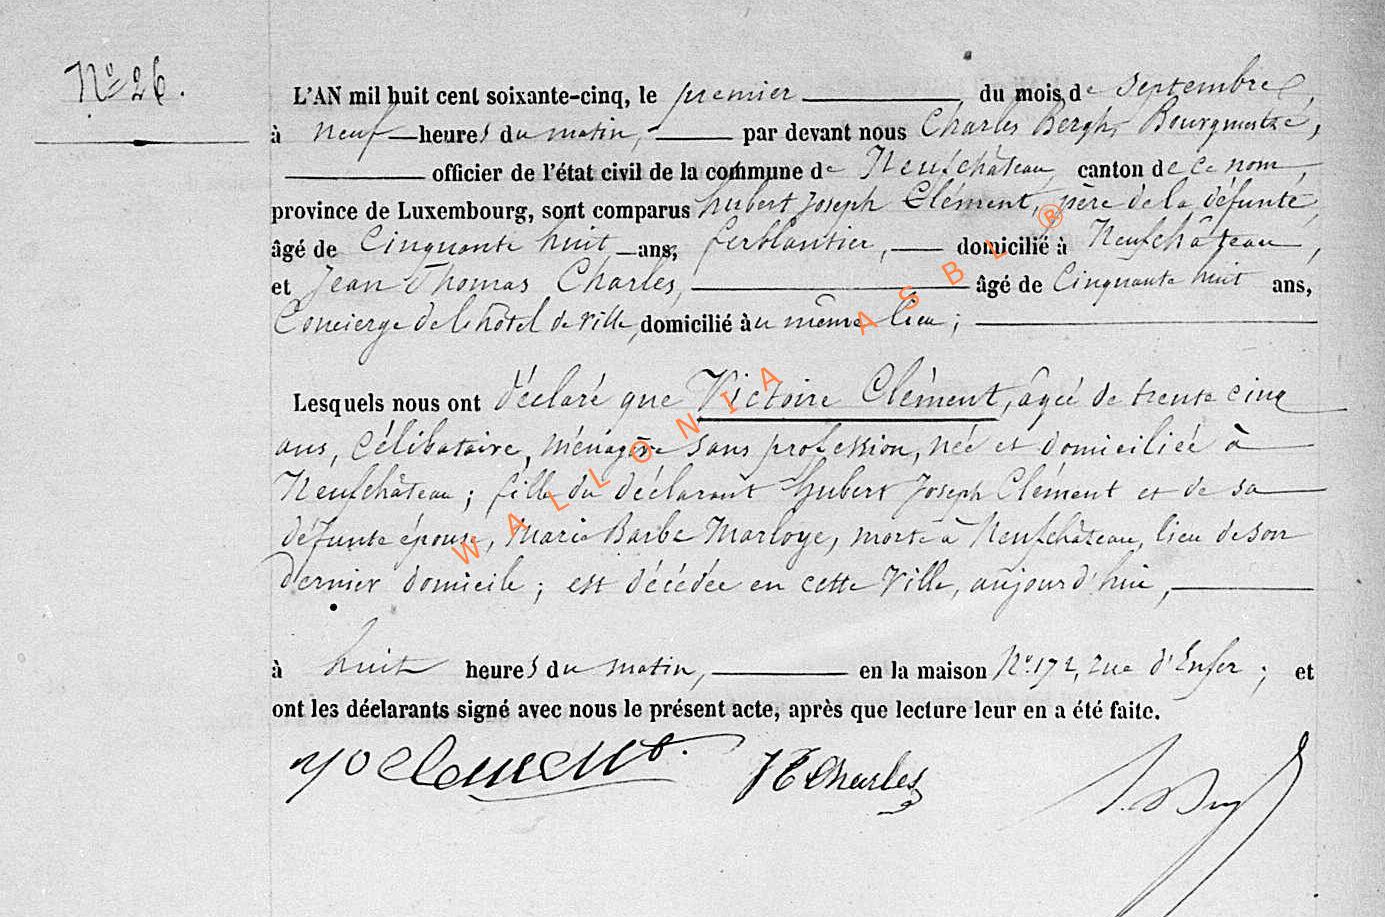 N° 26.
L'AN mil huit cent soixante-cinq, le premier du mois de Septembre,
à neuf heures du matin, par devant nous Charles Bergh, Bourgmestre,
officier de l'état civil de la commune de Neufchâteau, canton de ce nom,
province de Luxembourg, sont comparus hubert Joseph Clément, père de la défunte
âgé de Cinquante huit ans, ferblantier, domicilié à Neufchâteau,
et Jean Thomas Charles, âgé de Cinquante huit ans,
Concierge de l'hôtel de Ville, domicilié au même lieu;
Lesquels nous ont déclaré que Victoire Clément, âgée de trente cinq
ans, Célibataire, ménagère sans profession, née et domiciliée à
Neufchâteau; fille du déclarant hubert Joseph Clément et de sa
défunte épouse, Marie Barbe Marloye, morte à Neufchâteau, lieu de son
dernier domicile; est décédée en cette Ville, aujourd'hui,
à huit heures du matin, en la maison N° 172, rue d'Enfer; et
ont les déclarants signé avec nous le présent acte, après que lecture leur en a été faite.
Clement. JT Charles
WALLONIA ASBL ®